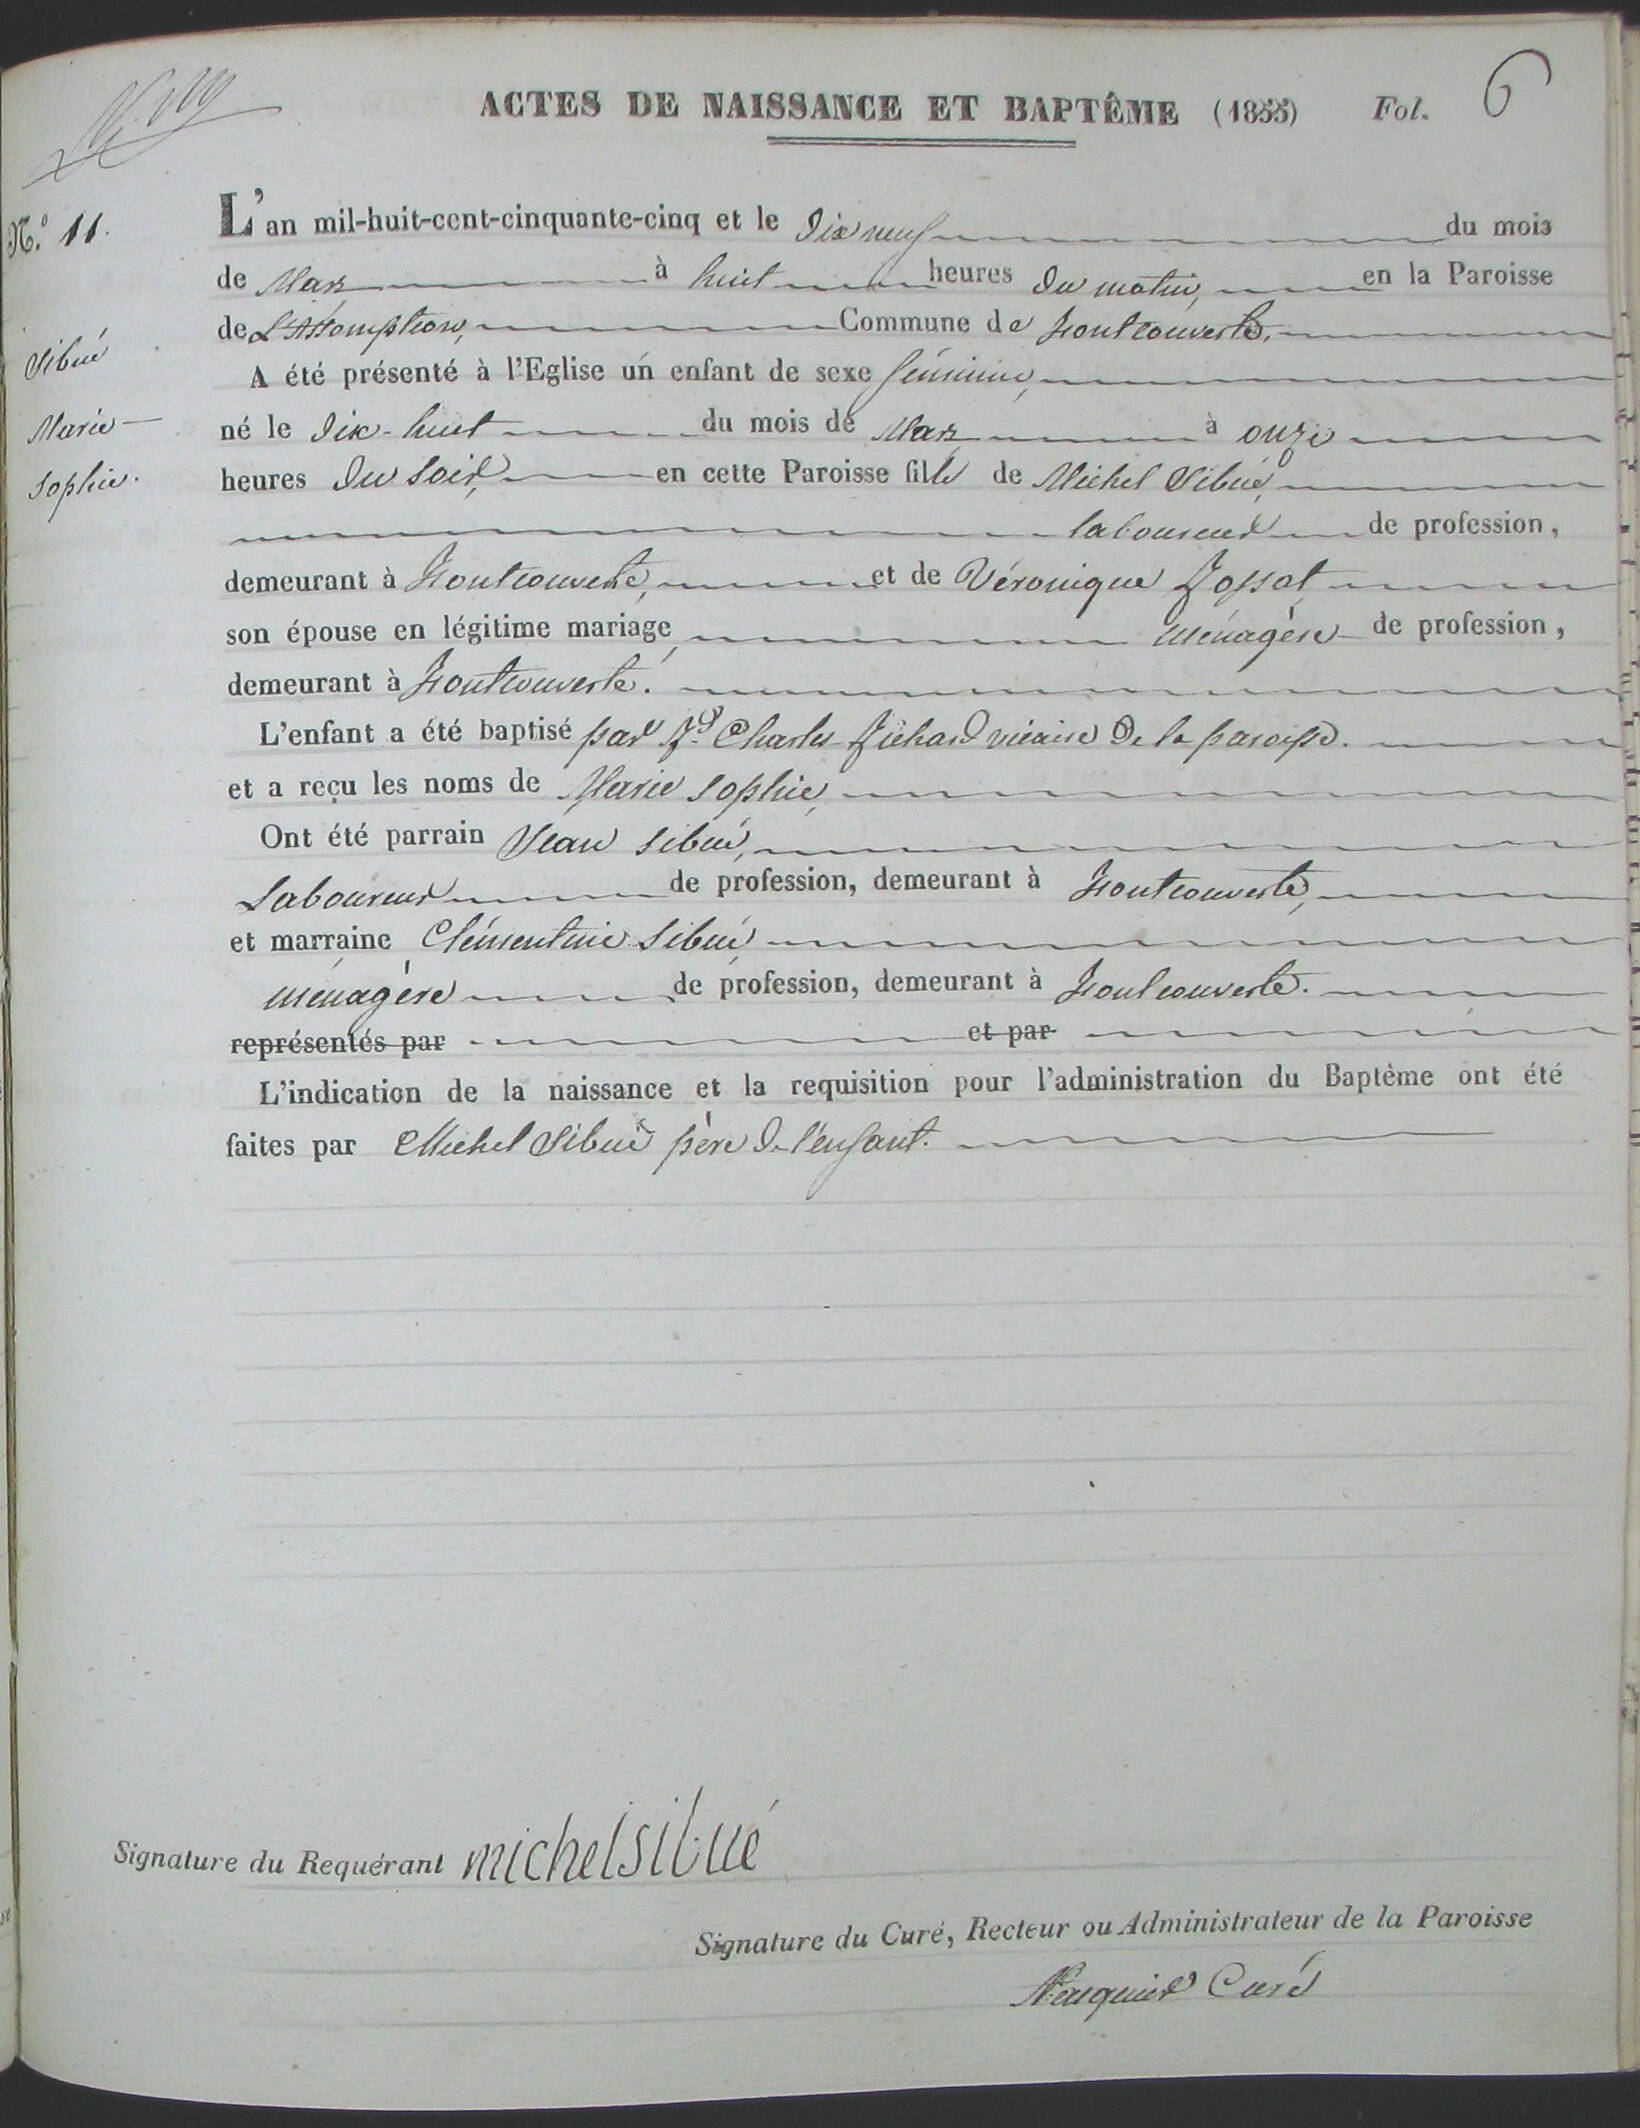 ACTES DE NAISSANCE ET BAPTÊME (1855) Fol. 6
N.º 11.
L'an mil-huit-cent-cinquante-cinq et le Dix neuf du mois
de Mars à huit heures du matin, en la Paroisse
de L'Assomption, Commune de Fontcouverte,
Sibué
Marie
Sophie.
A été présenté à l'Eglise un enfant de sexe féminin,
né le Dix-huit du mois de Mars à onze
heures du soir, en cette Paroisse fille de Michel Sibué,
laboureur de profession,
demeurant à Fontcouverte, et de Véronique Jossat
son épouse en légitime mariage, ménagère de profession,
demeurant à Fontcouverte.
L'enfant a été baptisé par Charles vicaire de la paroisse.
et a reçu les noms de Marie Sophie,
Ont été parrain Jean Sibué,
Laboureur de profession, demeurant à Fontcouverte,
et marraine Clémentine Sibué,
ménagère de profession, demeurant à Fontcouverte.
représentés par et par
L'indication de la naissance et la requisition pour l'administration du Baptême ont été
faites par Michel Sibué père de l'enfant.
Signature du Requérant michel sibué
Signature du Curé, Recteur ou Administrateur de la Paroisse
Curé